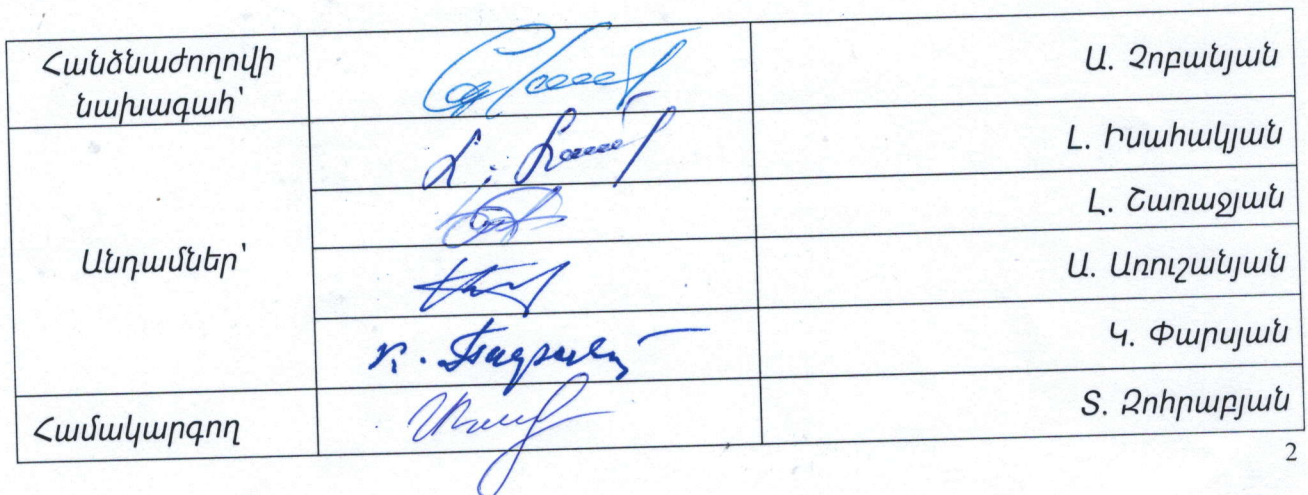 Հանձնաժողովի
նախագահ՝
Ա. Չոբանյան
Լ. Իսահակյան
Լ. Շառաջյան
Անդամներ՝
Ա. Առուշանյան
Կ. Փարսյան
Համակարգող
Տ. Զոհրաբյան
2